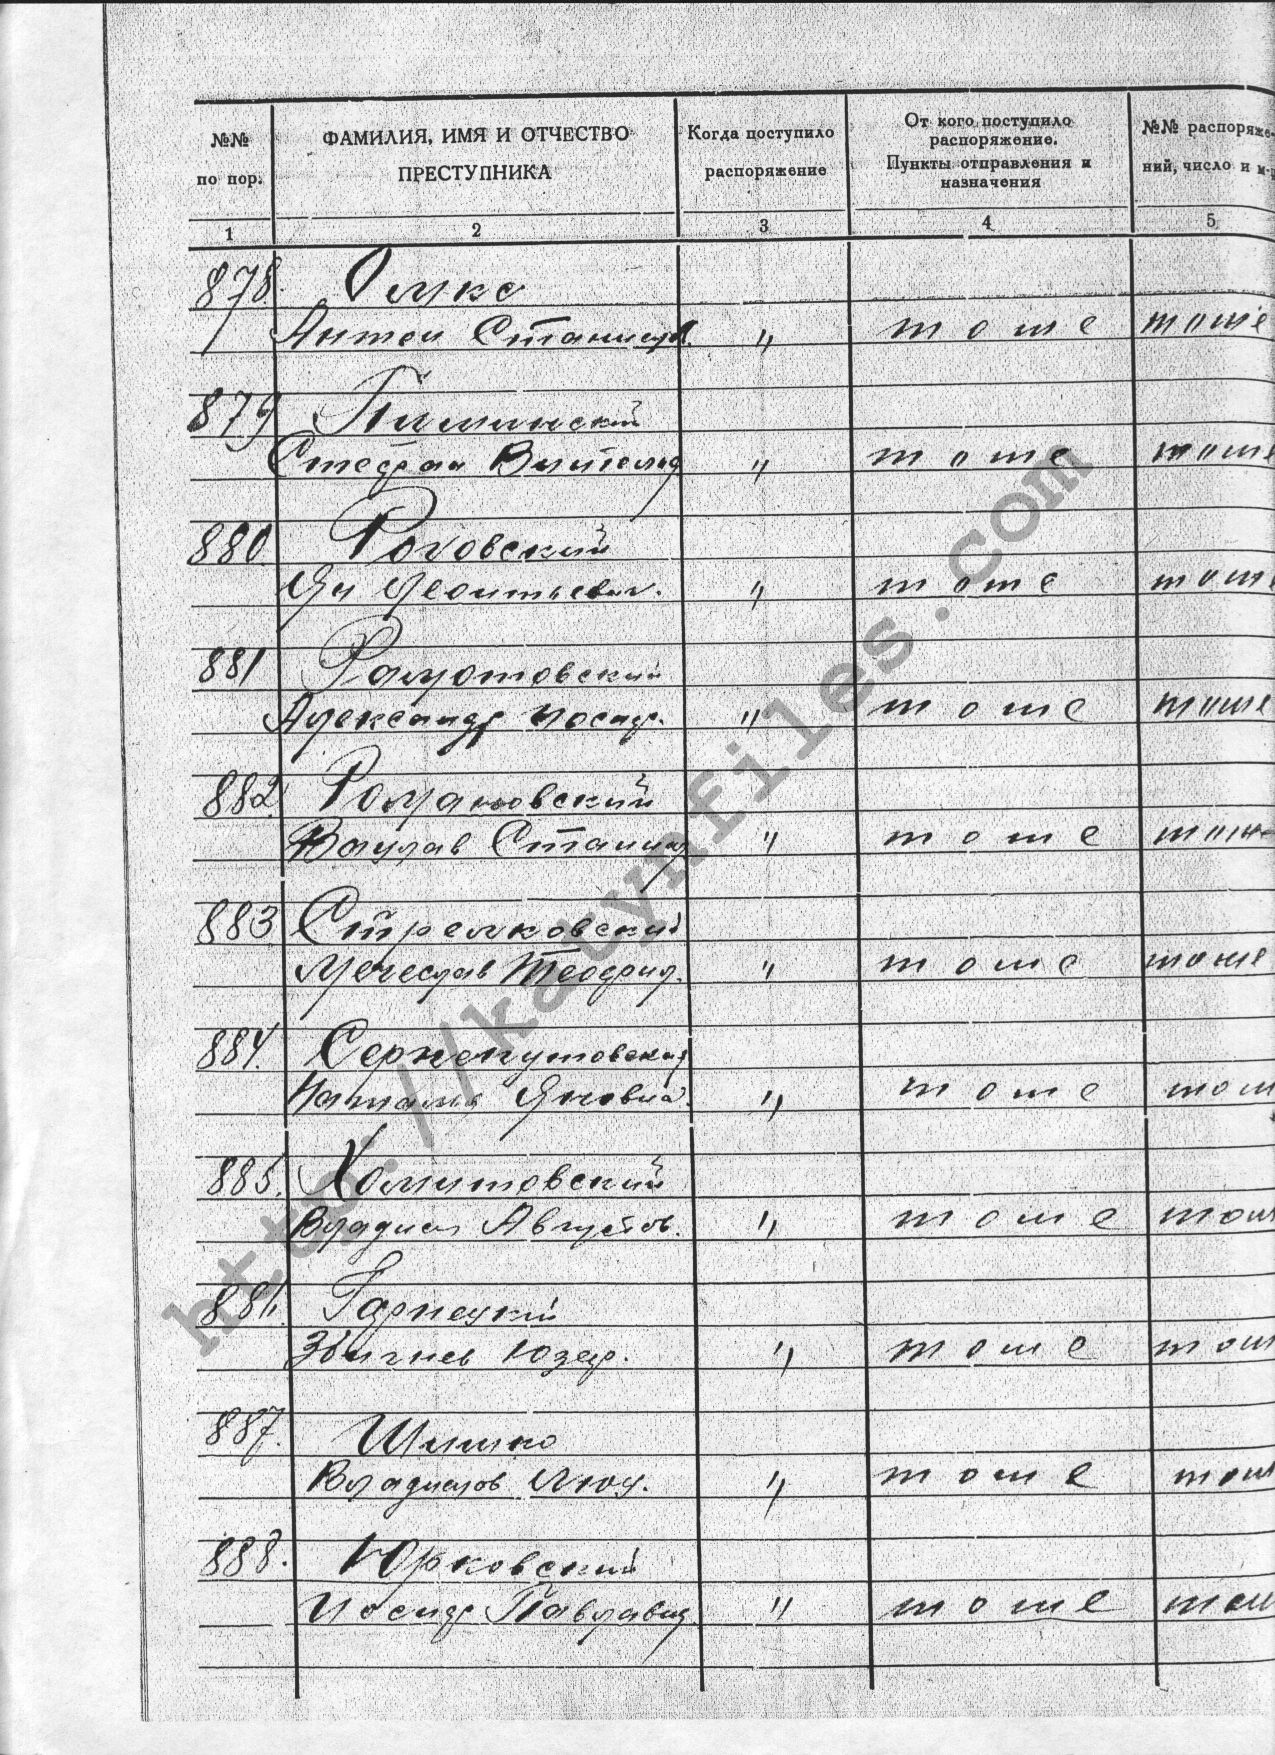 №№
по пор.
ФАМИЛИЯ, ИМЯ И ОТЧЕСТВО
ПРЕСТУПНИКА
Когда поступило
распоряжение
От кого поступило
распоряжение.
Пункты отправления и
назначения
№№ распоряже-
ний, число и м-
1 2 3 4 5
878.
Антон Станисл. " тоже тоже
879
Стефан Витольд " тоже тоже
880. Роговский
Ян Леонтьевич. " тоже тоже
881 Рамотовский
Александр Иосиф. " тоже тоже
882. Романовский
Вацлав Станисл " тоже тоже
883 Стрелковский
Мечеслав Теофил. " тоже тоже
884.
Наталья Яновна. " тоже тож
885.
Владисл Августов. " тоже тож
886. Гарнецкий
Збигнев Юзеф. " тоже тож
887. Шишко
Владислав " тоже тож
888. Юрковский
Иосиф " тоже тож
http://katynfiles.com